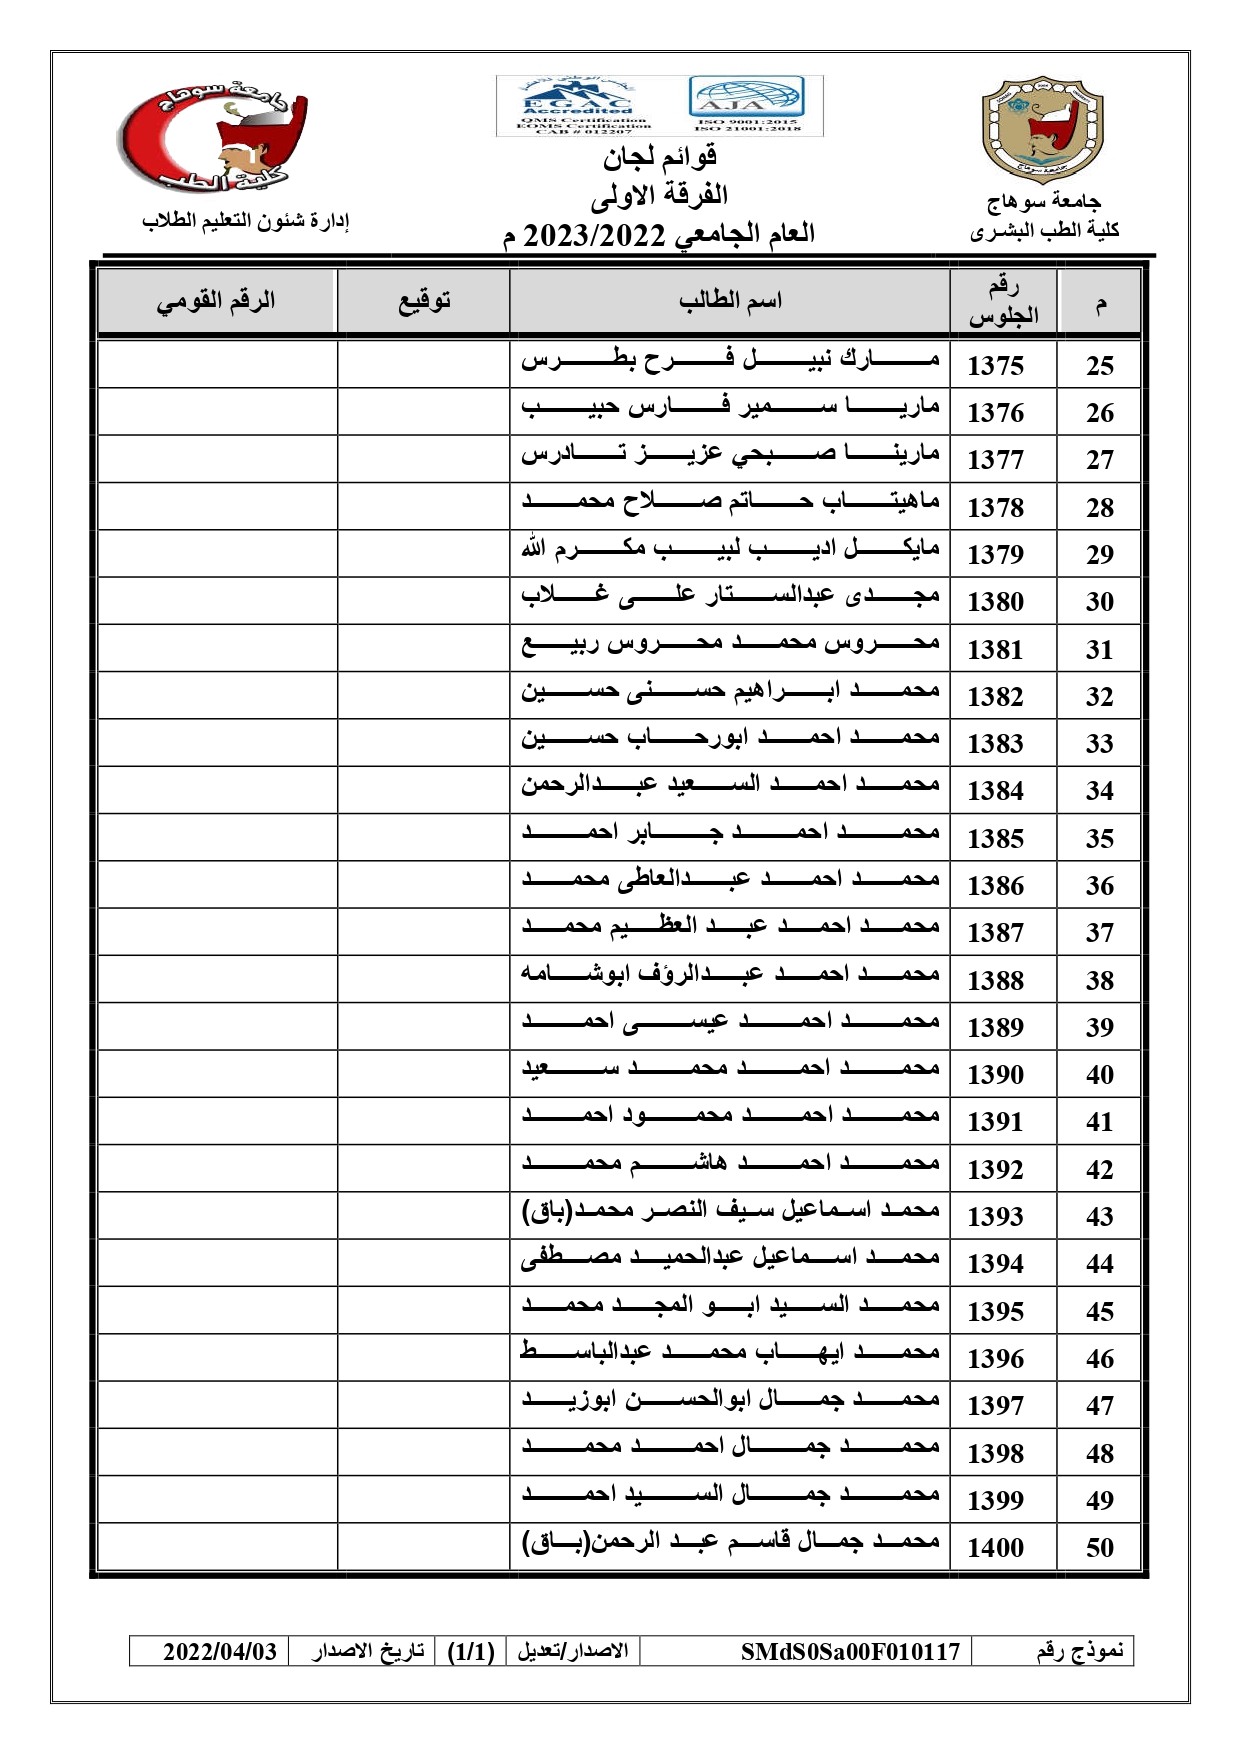 جامعة سوهاج
كلية الطب البشرى
EGAC
Accredited
QMS Certification
EOMS Certification
CAB # 012207
AJA
ISO 9001:2015
ISO 21001:2018
قوائم لجان
الفرقة الاولى
العام الجامعي 2023/2022 م
جامعة سوهاج
كلية الطب
إدارة شئون التعليم الطلاب
م رقم الجلوس اسم الطالب توقيع الرقم القومي
25 1375 مارك نبيل فرح بطرس
26 1376 ماريا سمير فارس حبيب
27 1377 مارينا صبحي عزيز تادرس
28 1378 ماهيتاب حاتم صلاح محمد
29 1379 مايكل اديب لبيب مكرم الله
30 1380 مجدى عبدالستار على غلاب
31 1381 محروس محمد محروس ربيع
32 1382 محمد ابراهيم حسنى حسين
33 1383 محمد احمد ابورحاب حسين
34 1384 محمد احمد السعيد عبدالرحمن
35 1385 محمد احمد جابر احمد
36 1386 محمد احمد عبدالعاطى محمد
37 1387 محمد احمد عبد العظيم محمد
38 1388 محمد احمد عبدالرؤف ابوشامه
39 1389 محمد احمد عيسى احمد
40 1390 محمد احمد محمد سعيد
41 1391 محمد احمد محمود احمد
42 1392 محمد احمد هاشم محمد
43 1393 محمد اسماعيل سيف النصر محمد(باق)
44 1394 محمد اسماعيل عبدالحميد مصطفى
45 1395 محمد السيد ابو المجد محمد
46 1396 محمد ايهاب محمد عبدالباسط
47 1397 محمد جمال ابوالحسن ابوزيد
48 1398 محمد جمال احمد محمد
49 1399 محمد جمال السيد احمد
50 1400 محمد جمال قاسم عبد الرحمن(باق)
نموذج رقم SMdS0Sa00F010117 الاصدار/تعديل (1/1) تاريخ الاصدار 2022/04/03